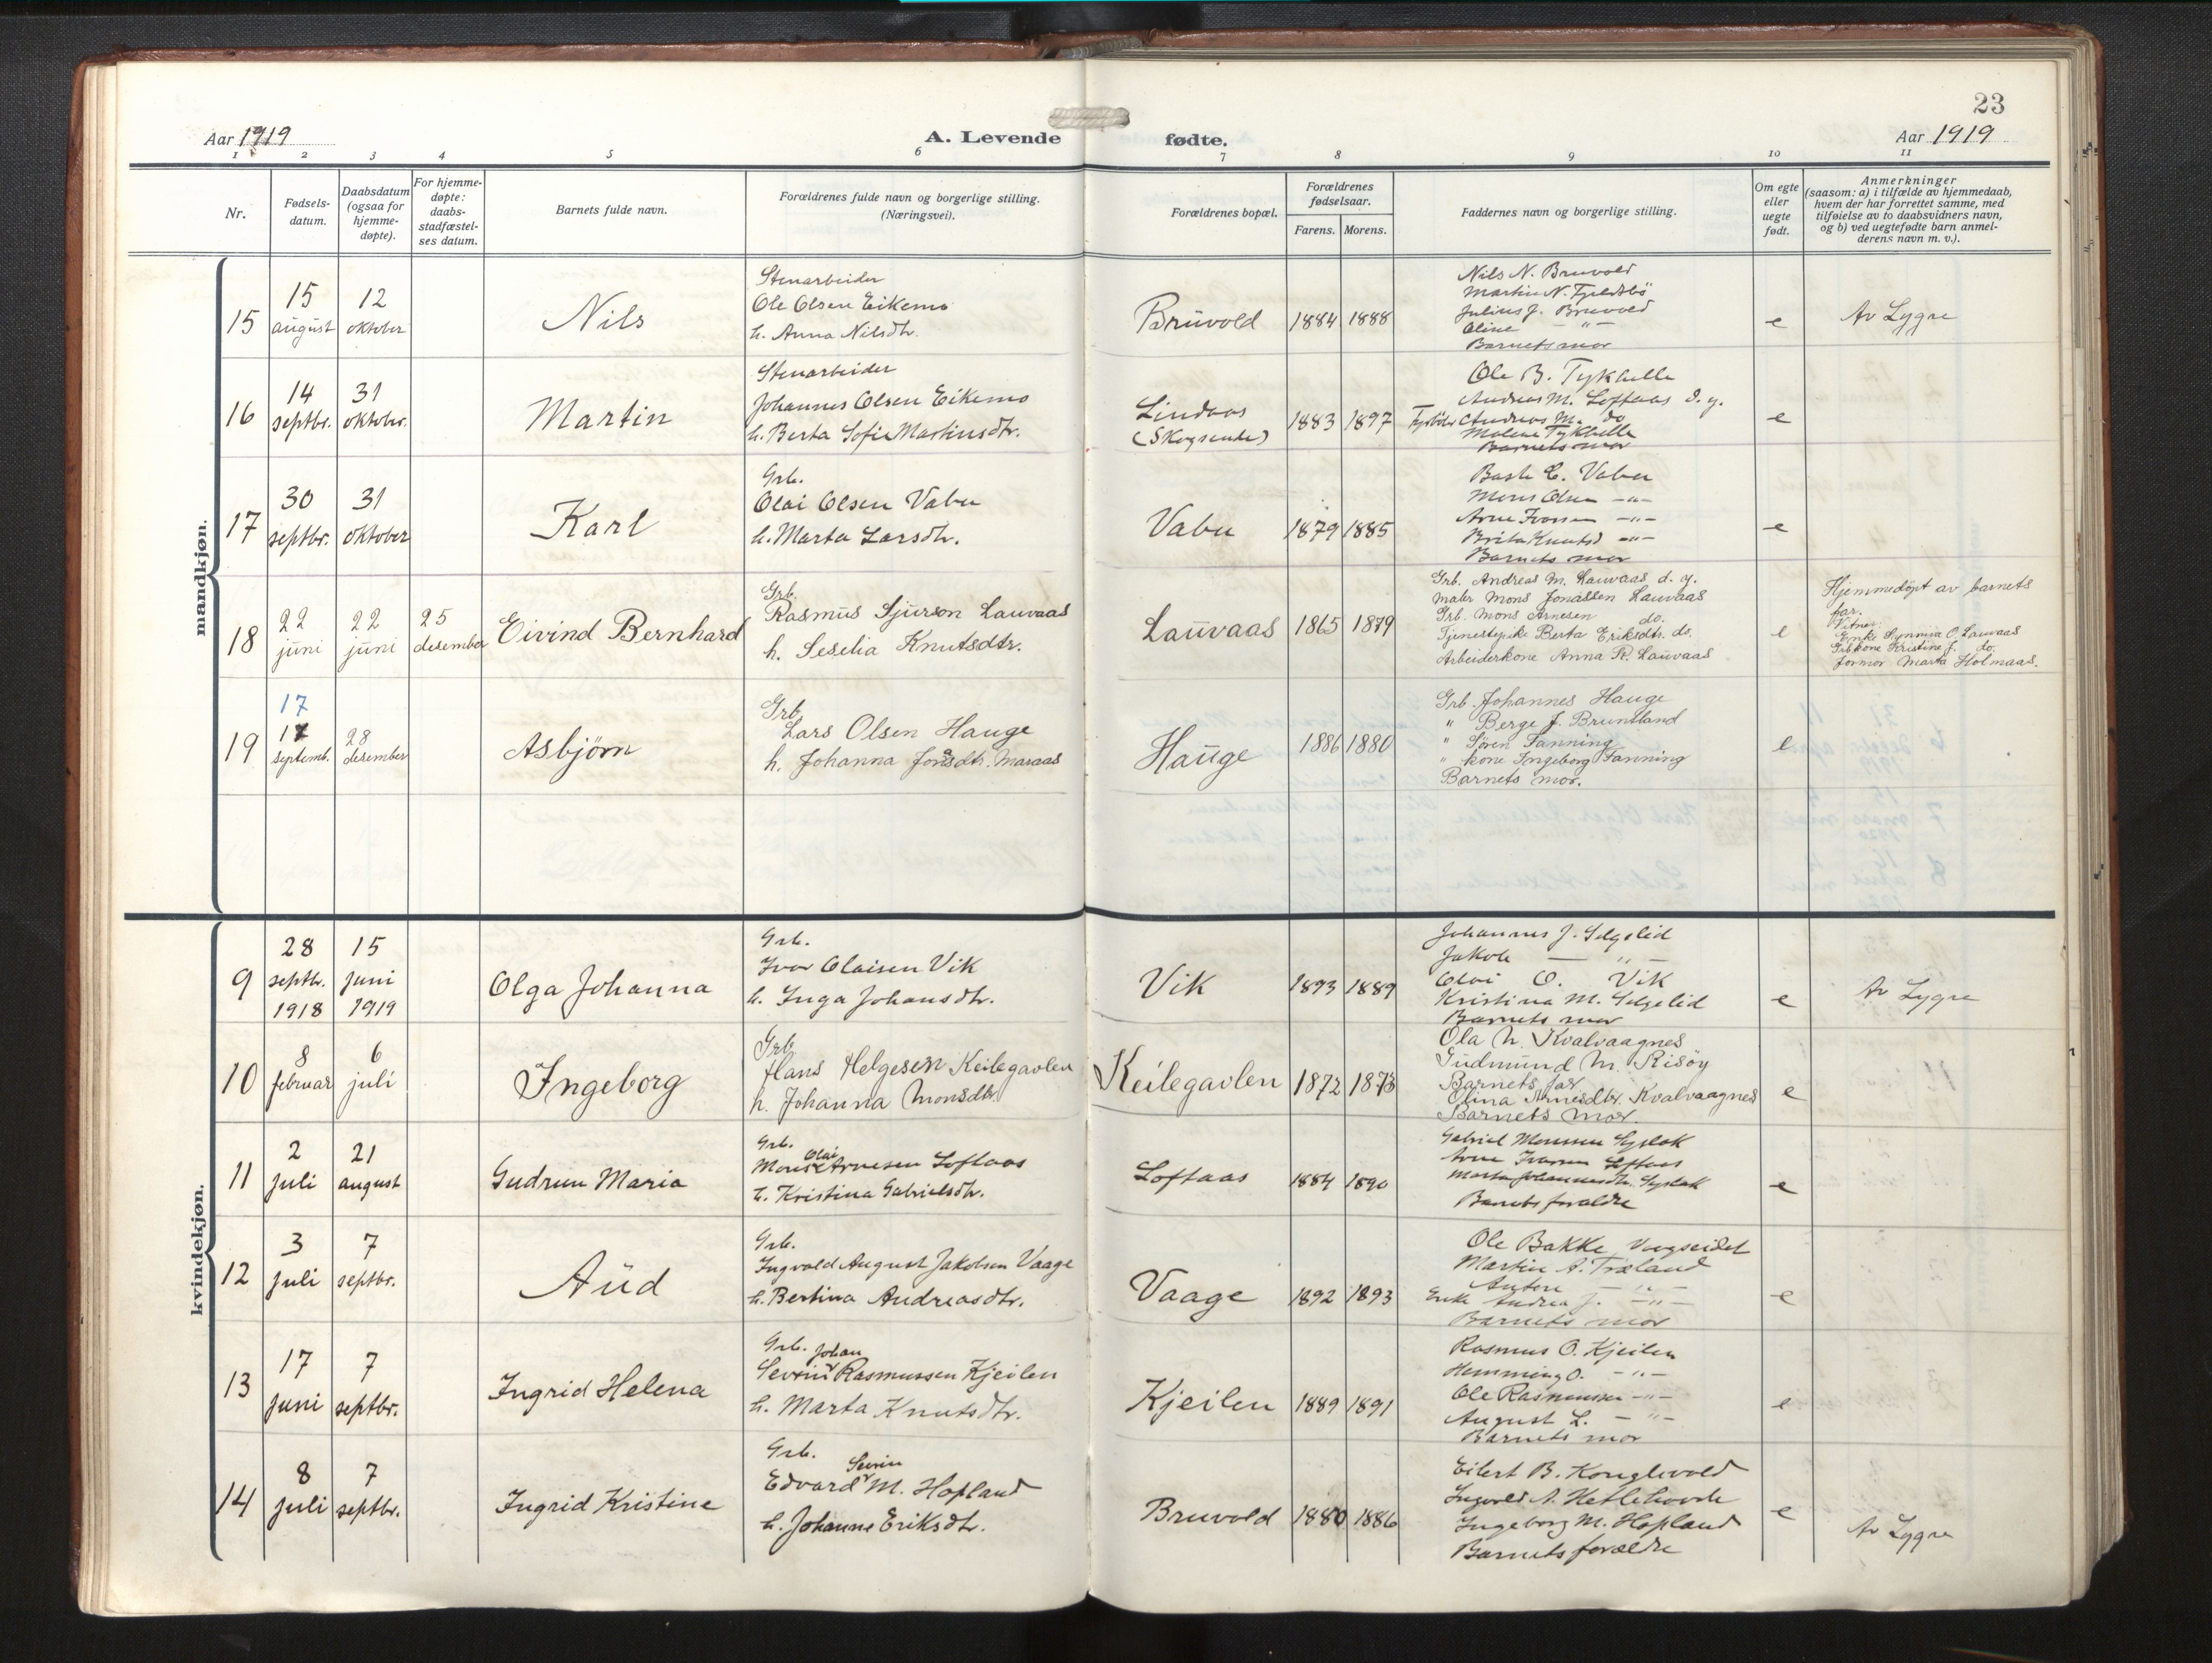 23
Aar 1919
A. Levende
fødte.
Aar 1919
1 2 3 4 5 6 7 8 9 10 11
Nr.
Fødsels-
datum.
Daabsdatum
(ogsaa for
hjemme-
døpte).
For hjemme-
døpte:
daabs-
stadfæstel-
ses datum.
Barnets fulde navn.
Forældrenes fulde navn og borgerlige stilling.
(Næringsvei).
Forældrenes bopæl.
Forældrenes
fødselsaar.
Farens. Morens.
Faddernes navn og borgerlige stilling.
Om egte
eller
uegte
født.
Anmerkninger
(saasom: a) i tilfælde av hjemmedaab,
hvem der har forrettet samme, med
tilføielse av to daabsvidners navn,
og b) ved uegtefødte barn anmel-
derens navn m. v.).
mandkjøn.
15
15
august
12
oktober
Nils
Stenarbeider
Ole Olsen Eikemo
h. Anna Nilsdtr.
Bruvold
1884 1888
Nils N. Bruvold
Martin N. Fjeldsbö
Julius J. Bruvold
Oline — " —
Barnets mor
e
Av Lygre
16
14
septbr.
31
oktober.
Martin
Stenarbeider
Johannes Olsen Eikemo
h. Berta Sofie Martinsdtr.
Lindaas
(Skogsende)
1883 1897
Ole B. Tykhelle
Andreas M. Loftaas d. y.
Andreas M. do
Malene Tykhelle
Barnets mor
e
17
30
septbr.
31
oktober
Karl
Grb.
Olai Olsen Vabu
h. Marta Larsdtr.
Vabu
1879 1885
C. Vabu
Mons Olsen — " —
Arne Ivarsen — " —
Brita Knutsd — " —
Barnets mor
e
18
22
juni
22
juni
25
desember
Eivind Bernhard
Grb.
Rasmus Sjurson Lauvaas
h. Seselia Knutsdtr.
Lauvaas
1865 1879
Grb. Andreas M. Lauvaas d. y.
maler Mons Jonassen Lauvaas
Grb. Mons Arnesen do.
Tjenestepike Berta Eriksdtr. do.
Arbeiderkone Anna R. Lauvaas
e
Hjemmedöpt av barnets
far.
Vitner:
Enke Synniva O. Lauvaas
Grbkone Kristine J. do.
formor Marta Holmaas.
19
17
17
septemb.
28
desember
Asbjörn
Grb.
Lars Olsen Hauge
h. Johanna Jonsdtr. Maraas
Hauge
1886 1880
Grb. Johannes Hauge
" Berge J. Bruntland
" Sören Fanning
" kone Ingeborg Fanning
Barnets mor.
e
kvindekjøn.
9
28
septbr.
1918
15
juni
1919
Olga Johanna
Grb.
Ivar Olaisen Vik
h. Inga Johansdtr.
Vik
1893 1889
Johannes J. Selgelid
Jakob — " —
Olai O. Vik
Kristina M. Selgelid
Barnets mor
e
Av Lygre
10
8
februar
6
juli
Ingeborg
Grb
Hans Helgesen Keilegavlen
h. Johanna Monsdtr.
Keilegavlen
1872 1873
Ola N. Kvalvaagnes
Gudmund M. Risöy
Barnets far
Olina Arnesdtr. Kvalvaagnes
Barnets mor.
e
11
2
juli
21
august
Gudrun Maria
Grb.
Olai
Mons Arnesen Loftaas
h. Kristina Gabrielsdtr.
Loftaas
1884 1890
Gabriel Monsen Syslak
Arne Ivarsen Loftaas
Marta Johannesdtr. Syslak
Barnets forældre
e
12
3
juli
7
septbr.
Aud
Grb.
Ingvald August Jakobsen Vaage
h. Bertina Andreasdtr.
Vaage
1892 1893
Ole Bakke, Vaagseidet
Martin A. Træland
Antere — " —
Enke Andrea J. — " —
Barnets mor
e
13
17
juni
7
septbr.
Ingrid Helena
Grb. Johan
Severin Rasmussen Kjeilen
h. Marta Knutsdtr.
Kjeilen
1889 1891
Rasmus O. Kjeilen
Hemming O. — " —
Ole Rasmussen — " —
August L. — " —
Barnets mor
e
14
8
juli
7
septbr.
Ingrid Kristine
Grb.
Severin
Edvard M. Hopland
h. Johanne Eriksdtr.
Bruvold
1880 1886
Eilert B. Konglevold
Ingvald A. Hetlehovde
Ingeborg M. Hopland
Barnets forældre
e
Av Lygre